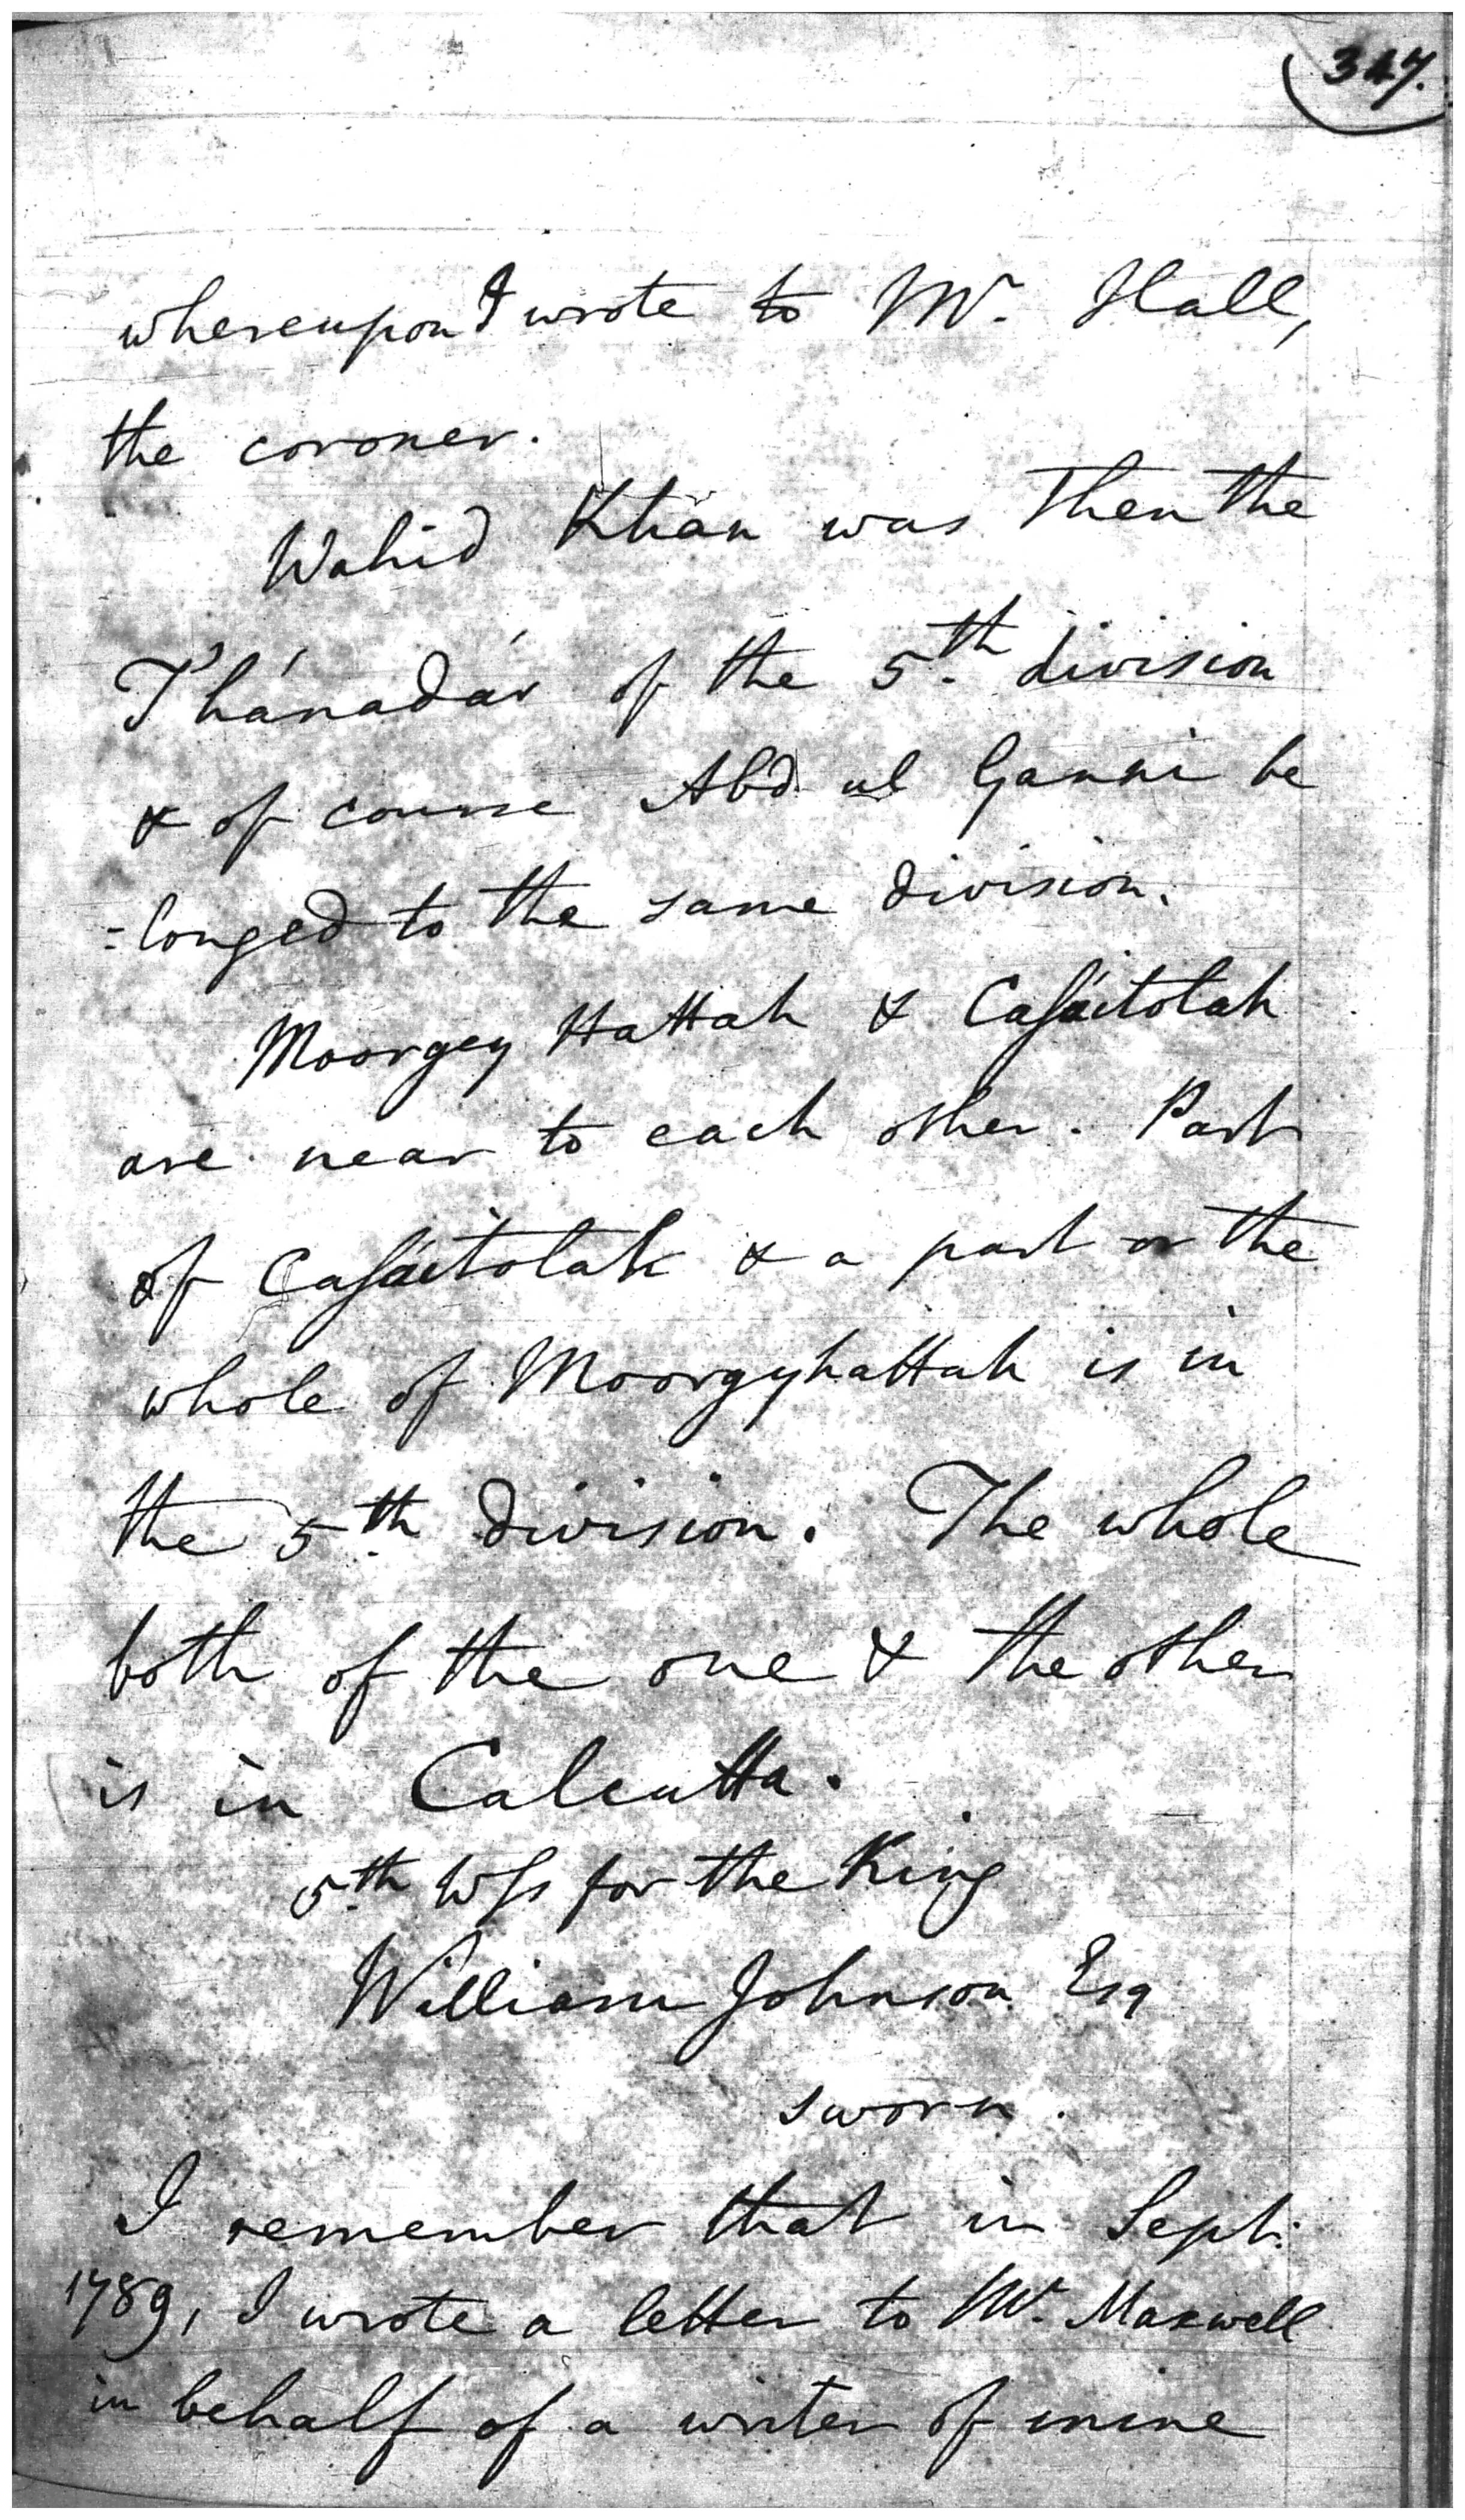 347.
whereupon I wrote to Mr. Hall,
the coroner.
Wahid Khan was then the
T'hánadár of the 5th division
& of course Abd ul Ganni be
=longed to the same division.
Moorgey Hattah & Caſáitolah
are near to each other. Part
of Caſáitolah & a part or the
whole of Moorgyhattah is in
the 5th division. The whole
both of the one & the other
is in Calcutta.
5th Wſs for the King
William Johnson Esq
sworn.
I remember that in Sept:
1789, I wrote a letter to Mr. Maxwell
in behalf of a writer of mine